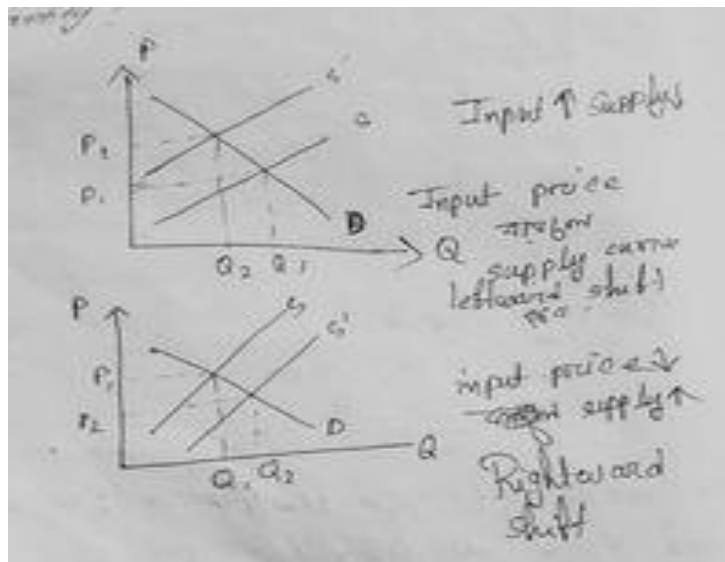 P
S'
S
P₂
P₁
D
Q₂
Q₁
Q
Input ↑ supply↓
Input price
বাড়লে
supply curve
leftward shift
P
S
S'
P₁
P₂
D
Q₁
Q₂
Q
input price ↓
supply ↑
Rightward
shift